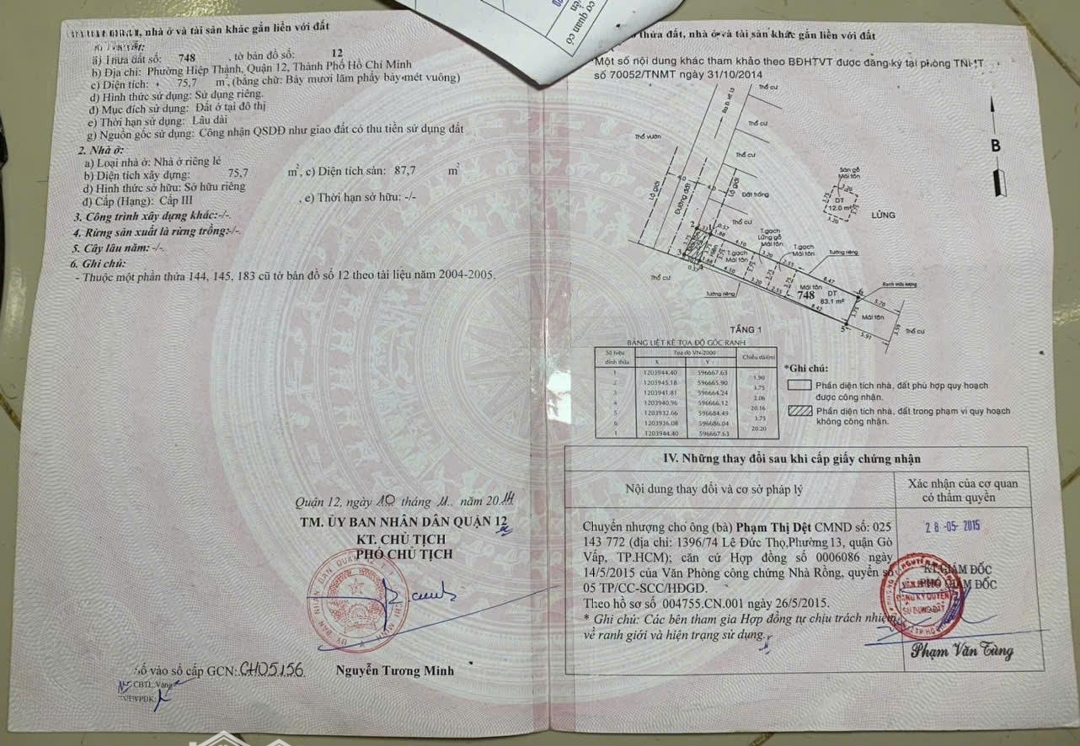 nhà ở và tài sản khác gắn liền với đất
a) Thửa đất số: 748 , tờ bản đồ số: 12
b) Địa chỉ: Phường Hiệp Thành, Quận 12, Thành Phố Hồ Chí Minh
c) Diện tích: 75,7 m², (bằng chữ: Bảy mươi lăm phẩy bảy mét vuông)
d) Hình thức sử dụng: Sử dụng riêng.
đ) Mục đích sử dụng: Đất ở tại đô thị
e) Thời hạn sử dụng: Lâu dài
g) Nguồn gốc sử dụng: Công nhận QSDĐ như giao đất có thu tiền sử dụng đất
2. Nhà ở:
a) Loại nhà ở: Nhà ở riêng lẻ
b) Diện tích xây dựng: 75,7 m², c) Diện tích sàn: 87,7 m²
d) Hình thức sở hữu: Sở hữu riêng , e) Thời hạn sở hữu: -/-
đ) Cấp (Hạng): Cấp III
3. Công trình xây dựng khác:-/-
4. Rừng sản xuất là rừng trồng:-/-
5. Cây lâu năm: -/-
6. Ghi chú:
- Thuộc một phần thửa 144, 145, 183 cũ tờ bản đồ số 12 theo tài liệu năm 2004-2005.
Quận 12, ngày 10 tháng 11 năm 2014
TM. ỦY BAN NHÂN DÂN QUẬN 12
KT. CHỦ TỊCH
PHÓ CHỦ TỊCH
Nguyễn Tương Minh
Số vào sổ cấp GCN: CH05156
cơ quan có
Thửa đất, nhà ở và tài sản khác gắn liền với đất
Một số nội dung khác tham khảo theo BĐHTVT được đăng ký tại phòng TNMT
số 70052/TNMT ngày 31/10/2014
Thổ cư
Thổ cư
Thổ vườn
Thổ cư
Đất trống
Thổ cư
Lộ giới
Đường đất
Lộ giới
B
Sàn gỗ
Mái tôn
3.20
ĐT
12.0 m²
3.20
LỬNG
T.gạch
Lửng gỗ
Mái tôn
T.gạch
Mái tôn
Tường riêng
T.gạch
Mái tôn
Thổ cư
Tường riêng
Mái tôn
748
DT
63.1 m²
Mái tôn
Thổ cư
TẦNG 1
BẢNG LIỆT KÊ TỌA ĐỘ GỐC RANH
Số hiệu đỉnh thửa Tọa độ VN-2000 Chiều dài(m)
X Y
1 1203944.40 596667.63
1.90
2 1203945.18 596665.90
3.75
3 1203941.81 596664.24
2.06
4 1203940.96 596666.12
20.16
5 1203932.66 596684.49
3.75
6 1203936.08 596686.04
20.20
1 1203944.40 596667.63
*Ghi chú:
Phần diện tích nhà, đất phù hợp quy hoạch
được công nhận.
Phần diện tích nhà, đất trong phạm vi quy hoạch
không công nhận.
IV. Những thay đổi sau khi cấp giấy chứng nhận
Nội dung thay đổi và cơ sở pháp lý
Xác nhận của cơ quan
có thẩm quyền
Chuyển nhượng cho ông (bà) Phạm Thị Dệt CMND số: 025
143 772 (địa chỉ: 1396/74 Lê Đức Thọ,Phường 13, quận Gò
Vấp, TP.HCM); căn cứ Hợp đồng số 0006086 ngày
14/5/2015 của Văn Phòng công chứng Nhà Rồng, quyển số
05 TP/CC-SCC/HĐGD.
Theo hồ sơ số 004755.CN.001 ngày 26/5/2015.
* Ghi chú: Các bên tham gia Hợp đồng tự chịu trách nhiệm
về ranh giới và hiện trạng sử dụng.
28-05-2015
KT.GIÁM ĐỐC
PHÓ GIÁM ĐỐC
Phạm Văn Tùng